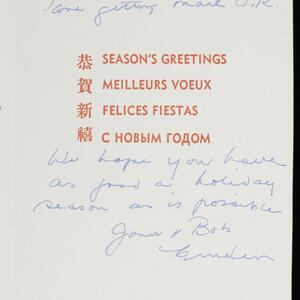 getting mail O.K.
恭賀新禧
SEASON'S GREETINGS
MEILLEURS VOEUX
FELICES FIESTAS
С НОВЫМ ГОДОМ
We hope you have
as good a holiday
season as is possible
Janet & Bob